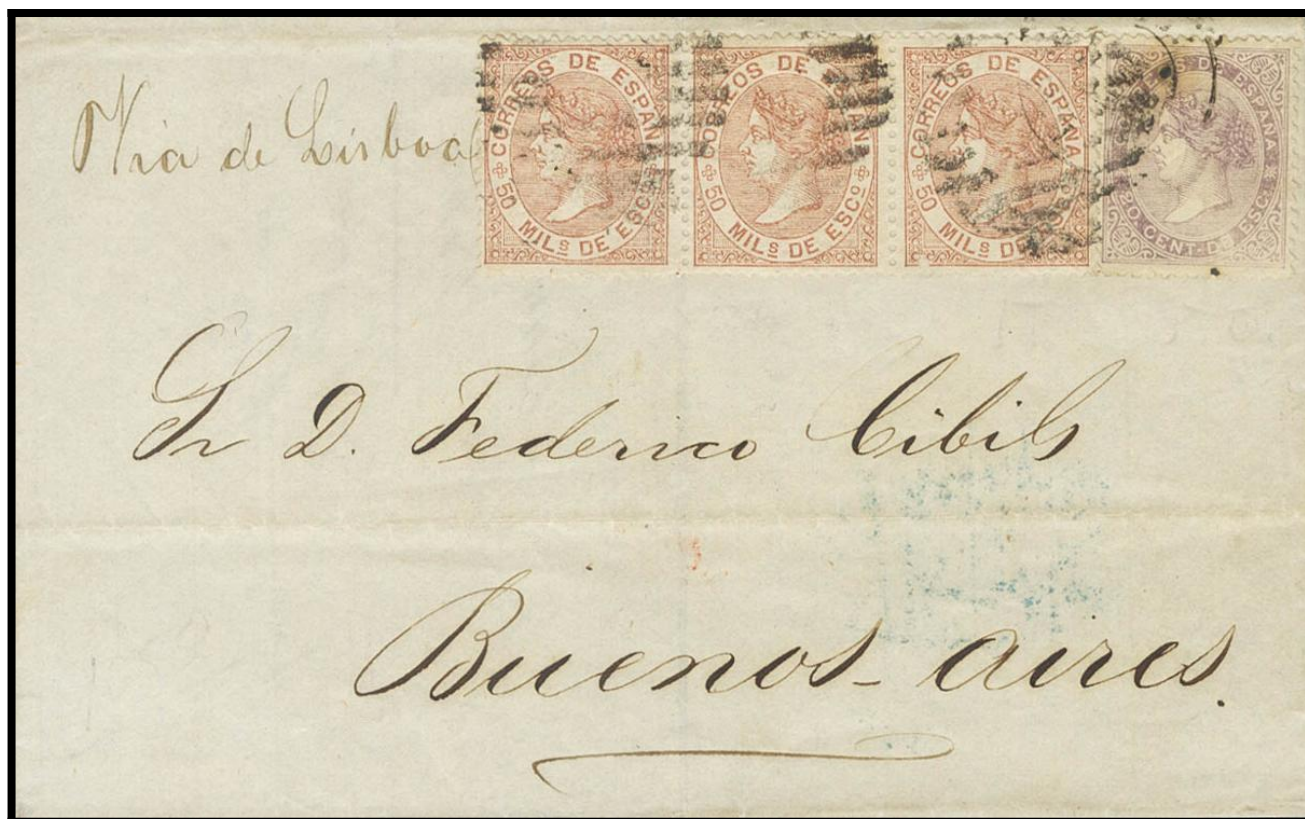 Via de Lisboa
CORREOS DE ESPAÑA
50 MILS DE ESCO
CORREOS DE
50 MILS DE ESCO
CORREOS DE ESPAÑA
50 MILS DE
DE ESPAÑA
20. CENT. DE ESC.
Sr D. Federico Cibils
Buenos-aires.